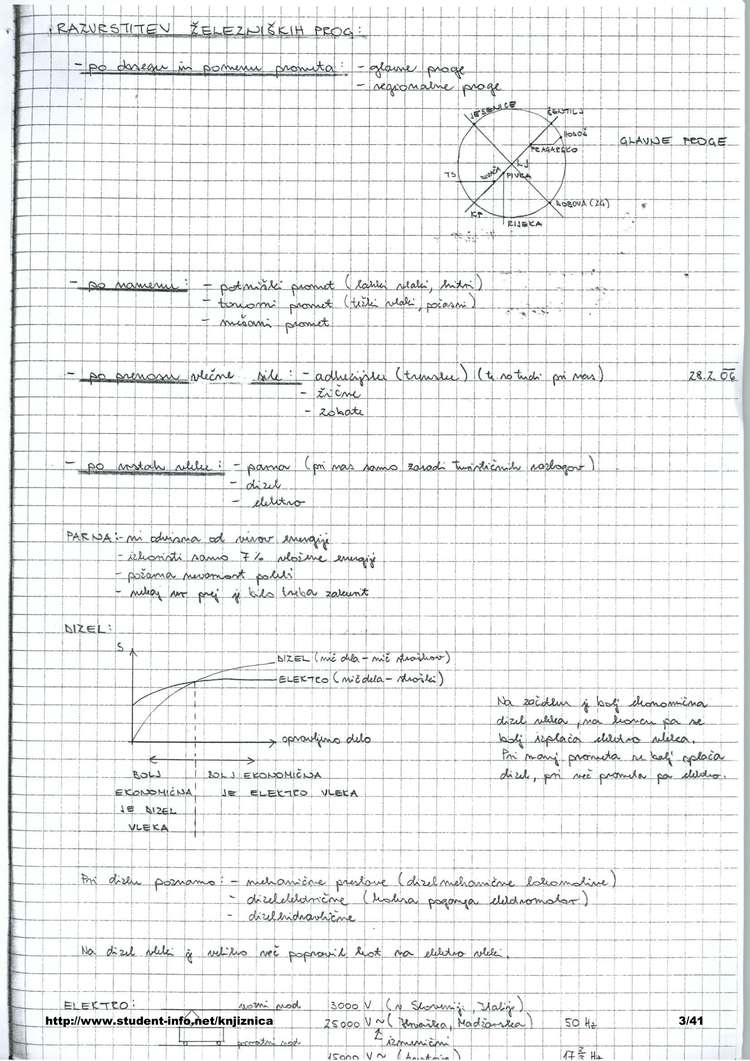 RAZVRSTITEV ŽELEZNIŠKIH PROG:
- po dosegu in pomenu prometa: - glavne proge
- regionalne proge
JESENICE
ŠENTILJ
HODOŠ
PRAGARSKO
GLAVNE PROGE
LJ
TS
DIVAČA
PIVKA
KP
DOBOVA (ZG)
RIJEKA
- po namenu: - potniški promet (lahki vlaki, hitri)
- tovorni promet (težki vlaki, počasni)
- mešani promet
- po prenosu vlečne sile: - adhezijske (trenske) (te so tudi pri nas)
28.2.06
- žične
- zobate
- po vrstah vleke: - parna (pri nas samo zaradi turističnih razlogov)
- dizel
- elektro
PARNA: - ni odvisna od virov energije
- izkoristi samo 7% vložene energije
- požarna nevarnost poleti
- nekaj ur prej je bilo treba zakurit
DIZEL:
S
DIZEL (nič dela - nič stroškov)
ELEKTRO (nič dela - stroški)
opravljeno delo
BOLJ EKONOMIČNA JE DIZEL VLEKA
BOLJ EKONOMIČNA JE ELEKTRO VLEKA
Na začetku je bolj ekonomična
dizel vleka, na koncu pa se
bolj izplača elektro vleka.
Pri manj prometa se bolj splača
dizel, pri več prometa pa elektro.
Pri dizlu poznamo: - mehanične prestave (dizelmehanične lokomotive)
- dizelelektrične (katera poganja elektromotor)
- dizelhidravlične
Na dizel vleki je veliko več popravil kot na elektro vleki.
ELEKTRO:
vozni vod
3000 V (v Sloveniji, Italiji)
http://www.student-info.net/knjiznica
25000 V ~ (Hrvaška, Madžarska)
50 Hz
3/41
izmenični
povratni vod
15000 V ~ (Avstrija)
17 2/3 Hz